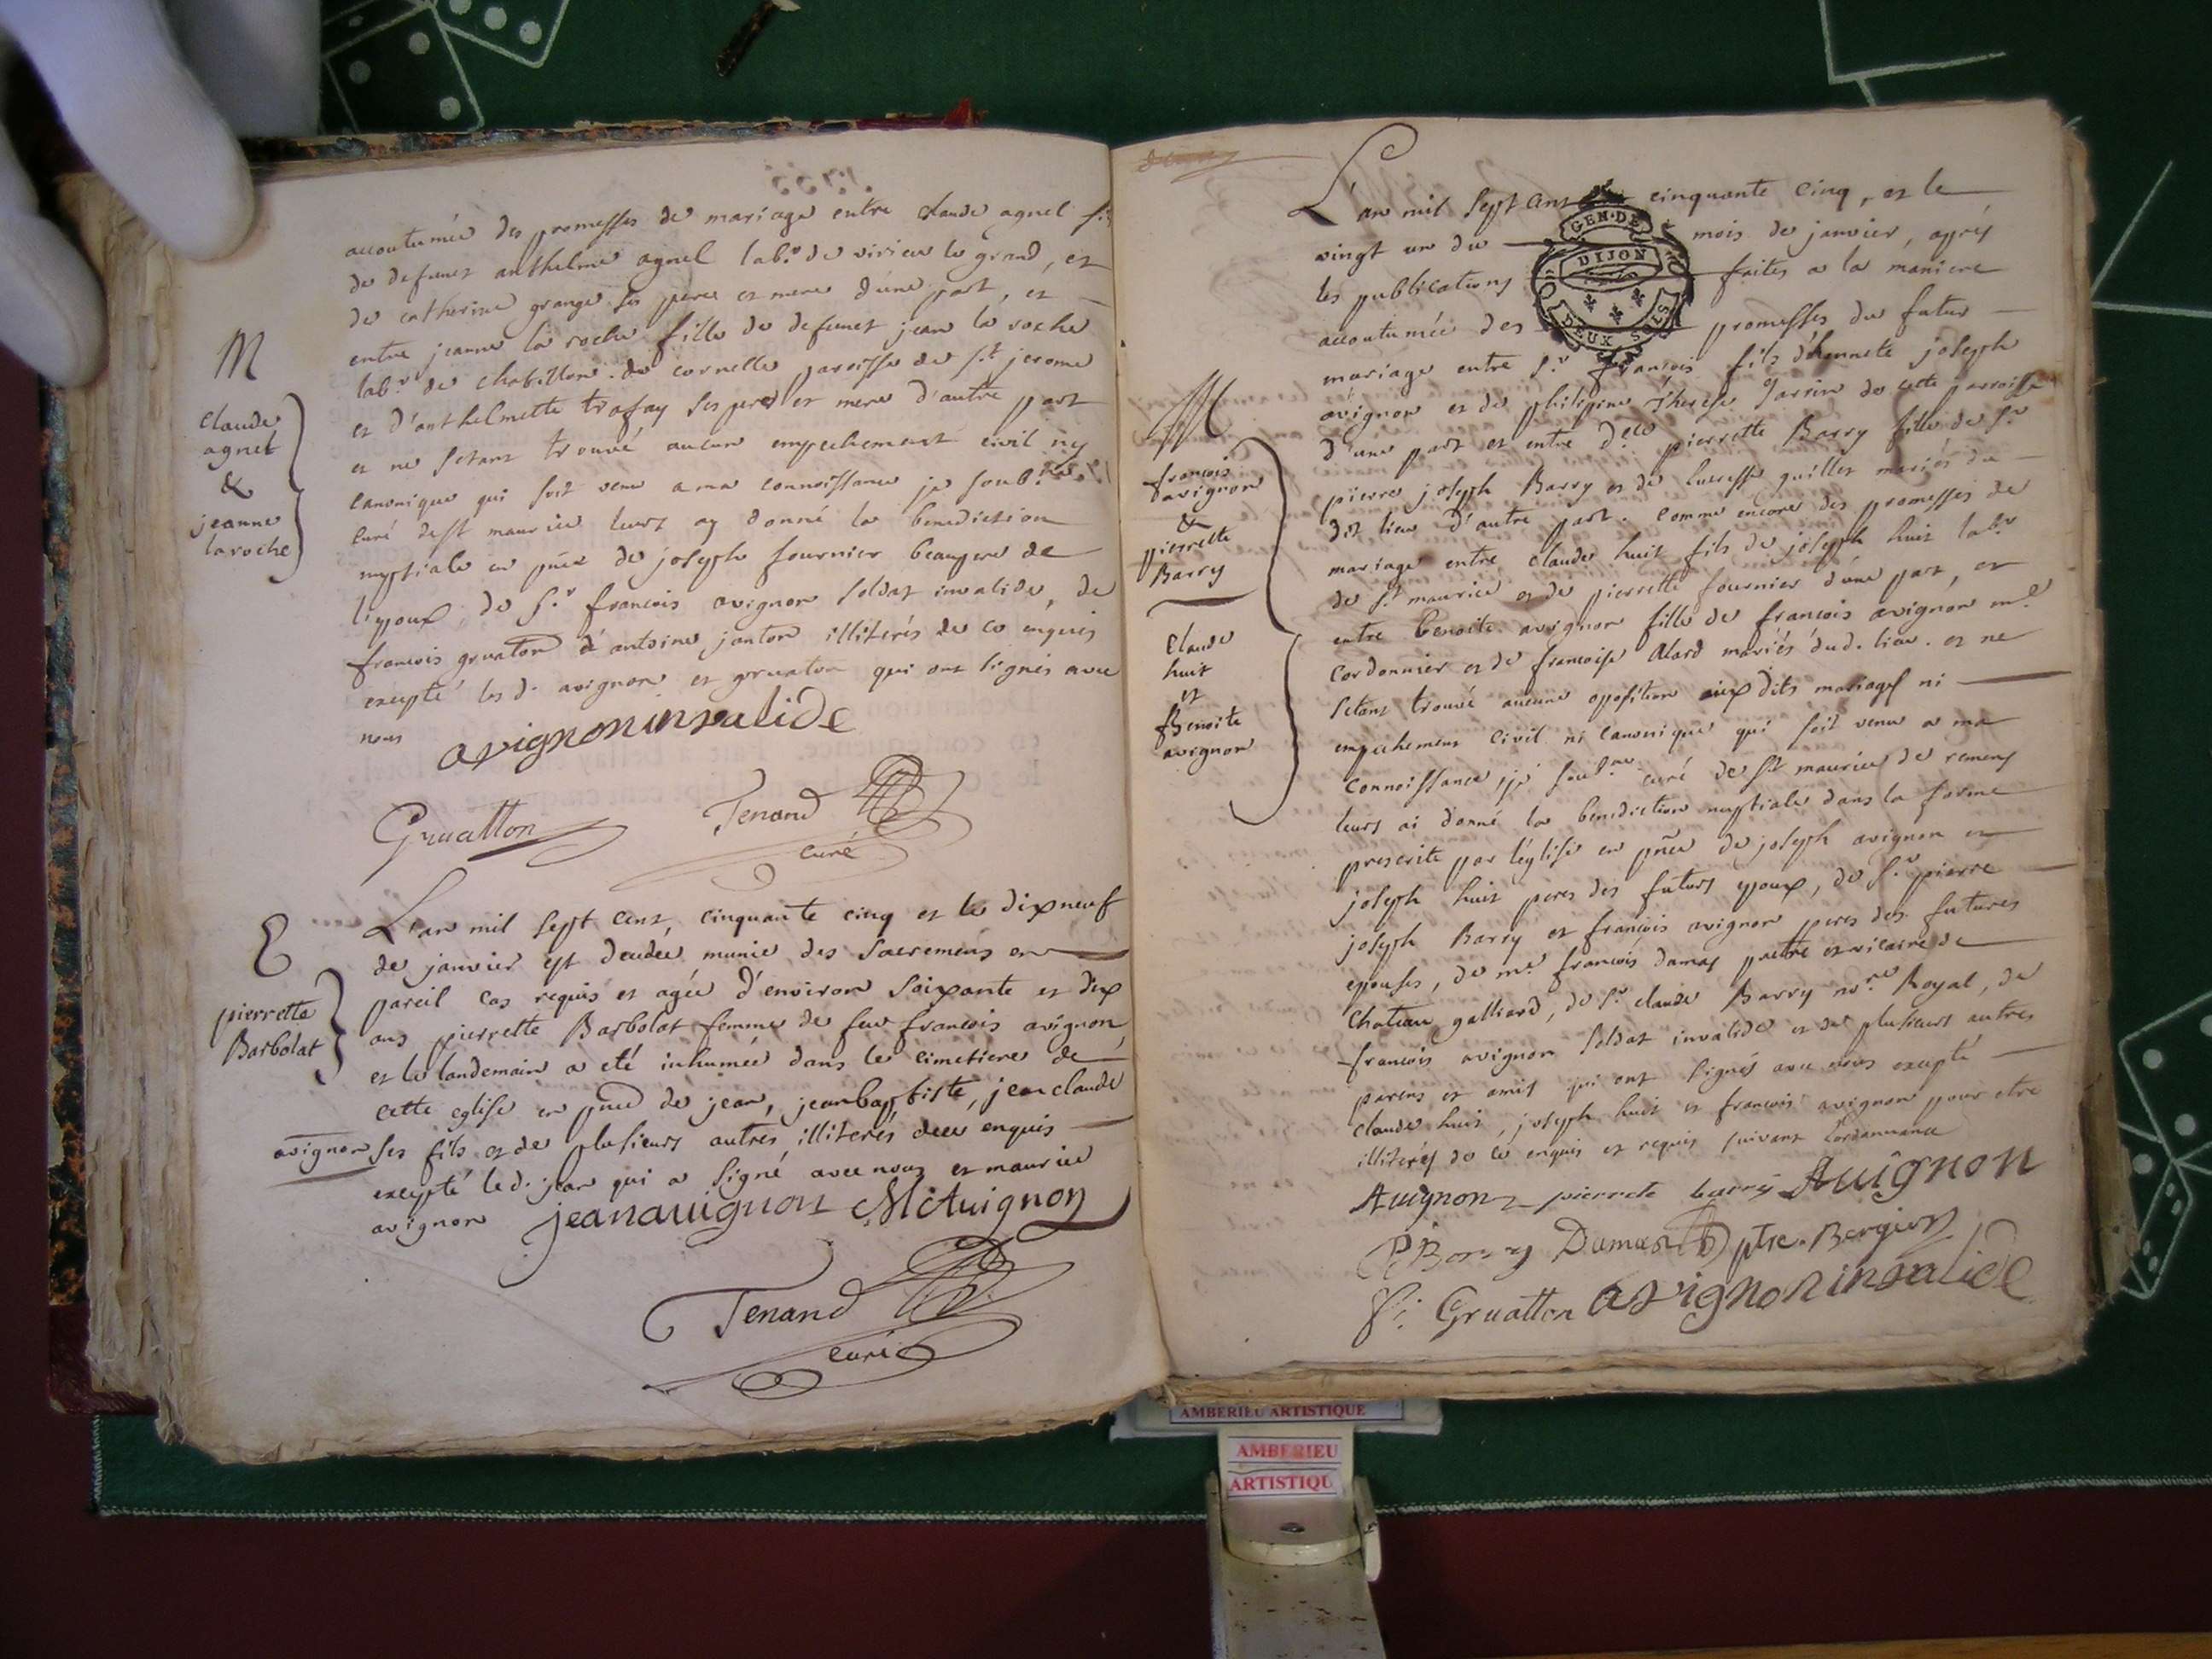 accoutumée des promesses de mariage entre claude agnel fils
de defunct anthelme agnel lab.r de virieu le grand, et
de catherine grange ses pere et mere d'une part, et
entre jeanne la roche fille de defunct jean la roche
lab.r de chatillon de cornelle paroisse de s.t jerome
et d'anthelmette trafay ses pere et mere d'autre part
et ne s'etant trouvé aucun empechement civil ny
canonique qui soit venu a ma connoissance je soub.né
curé de st maurice leurs ay donné la benediction
nuptiale en pñce de joseph fournier beaupere de
l'epoux, de s.r francois avignon soldat invalide, de
francois gruaton d'antoine janton illiterés de ce enquis
excepté les d. avignon et gruaton qui ont signés avec
nous
avignon invalide
Gruatton
Tenand
curé
M
claude
agnel
&
jeanne
laroche
L'an mil sept cent, cinquante cinq et le dixneuf
de janvier est decedée munie des sacremens en
pareil cas requis et agée d'environ soixante et dix
ans pierrette Barbolat femme de feu francois avignon
et le landemain a eté inhumée dans le cimetiere de
cette eglise en pñce de jean, jeanbaptiste, jean claude
avignon ses fils et de plusieurs autres illiterés de ce enquis
excepté led. jean qui a signé avec nous et maurice
avignon jeanauignon M Auignon
Tenand
curé
E
pierrette
Barbolat
L'an mil sept cent cinquante cinq, et le
vingt un du mois de janvier, aprés
les publications faites a la maniere
accoutumée des promesses du futur
mariage entre s.r françois fils d'honnete joseph
avignon et de philipine therese Jarrin de cette parroisse
d'une part et entre d.elle pierrette Barry fille de s.r
pierre joseph Barry et de lucresse guillet mariés du
dit lieu d'autre part. comme encore des promesses de
mariage entre claude huit fils de joseph huit lab.r
de s.t maurice et de pierrette fournier d'une part, et
entre benoite avignon fille de francois avignon m.e
cordonnier et de francoise Alard mariés dud. lieu. et ne
s'etant trouvé aucune oposition aux dits mariages ni
empechement civil ni canonique qui soit venu a ma
connoissance, je soub.né curé de st maurice de remens
leurs ai donné la benediction nuptiale dans la forme
prescrite par l'église en pñce de joseph avignon et
joseph huit peres des futurs epoux, de s.r pierre
joseph Barry et françois avignon peres des futures
epouses, de m.e francois damas prêtre et vicaire de
chateau galliard, de s.r claude Barry no.re Royal, de
francois avignon soldat invalide et de plusieurs autres
parens et amis qui ont signés avec nous excepté
claude huit, joseph huit et francois avignon pour etre
illiterés de ce enquis et requis suivant l'ordonnance
Auignon pierrete barry Auignon
PJ Barry Damas ptre. Bergier
Gruatton avignon invalide
GEN. DE
DIJON
DEUX SOLS
M
francois
avignon
&
pierrette
Barry
Claude
huit
et
Benoite
avignon
AMBERIEU ARTISTIQUE
AMBERIEU
ARTISTIQU